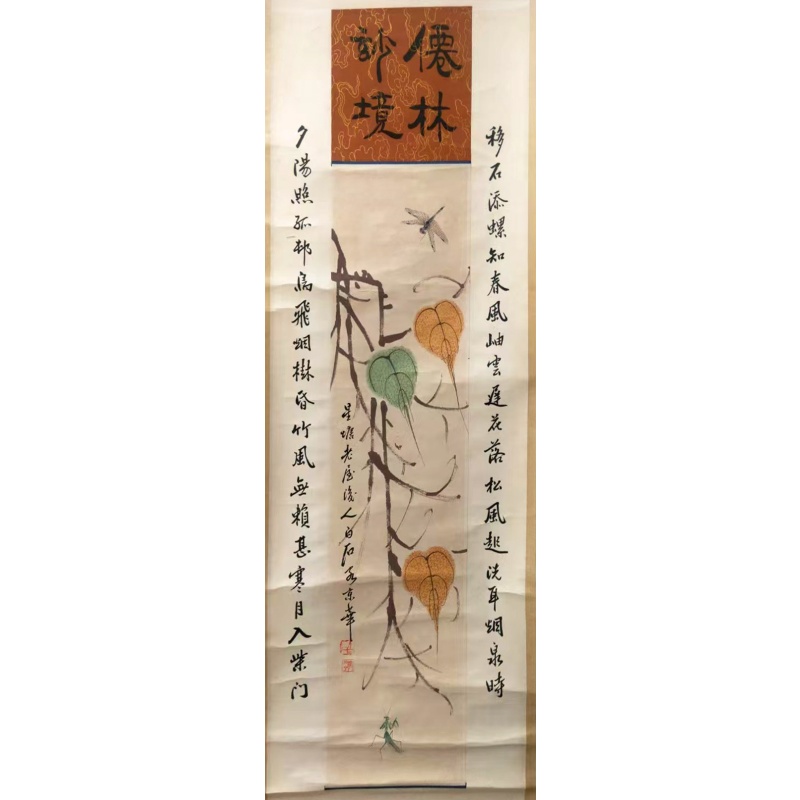 僊林
訬境
移石添螺知春風岫雲遲花落松風起洗耳烟泉時
星塘老屋後人白石客京華
夕陽照孤邨鳥飛烟樹昏竹風無賴甚寒月入柴门